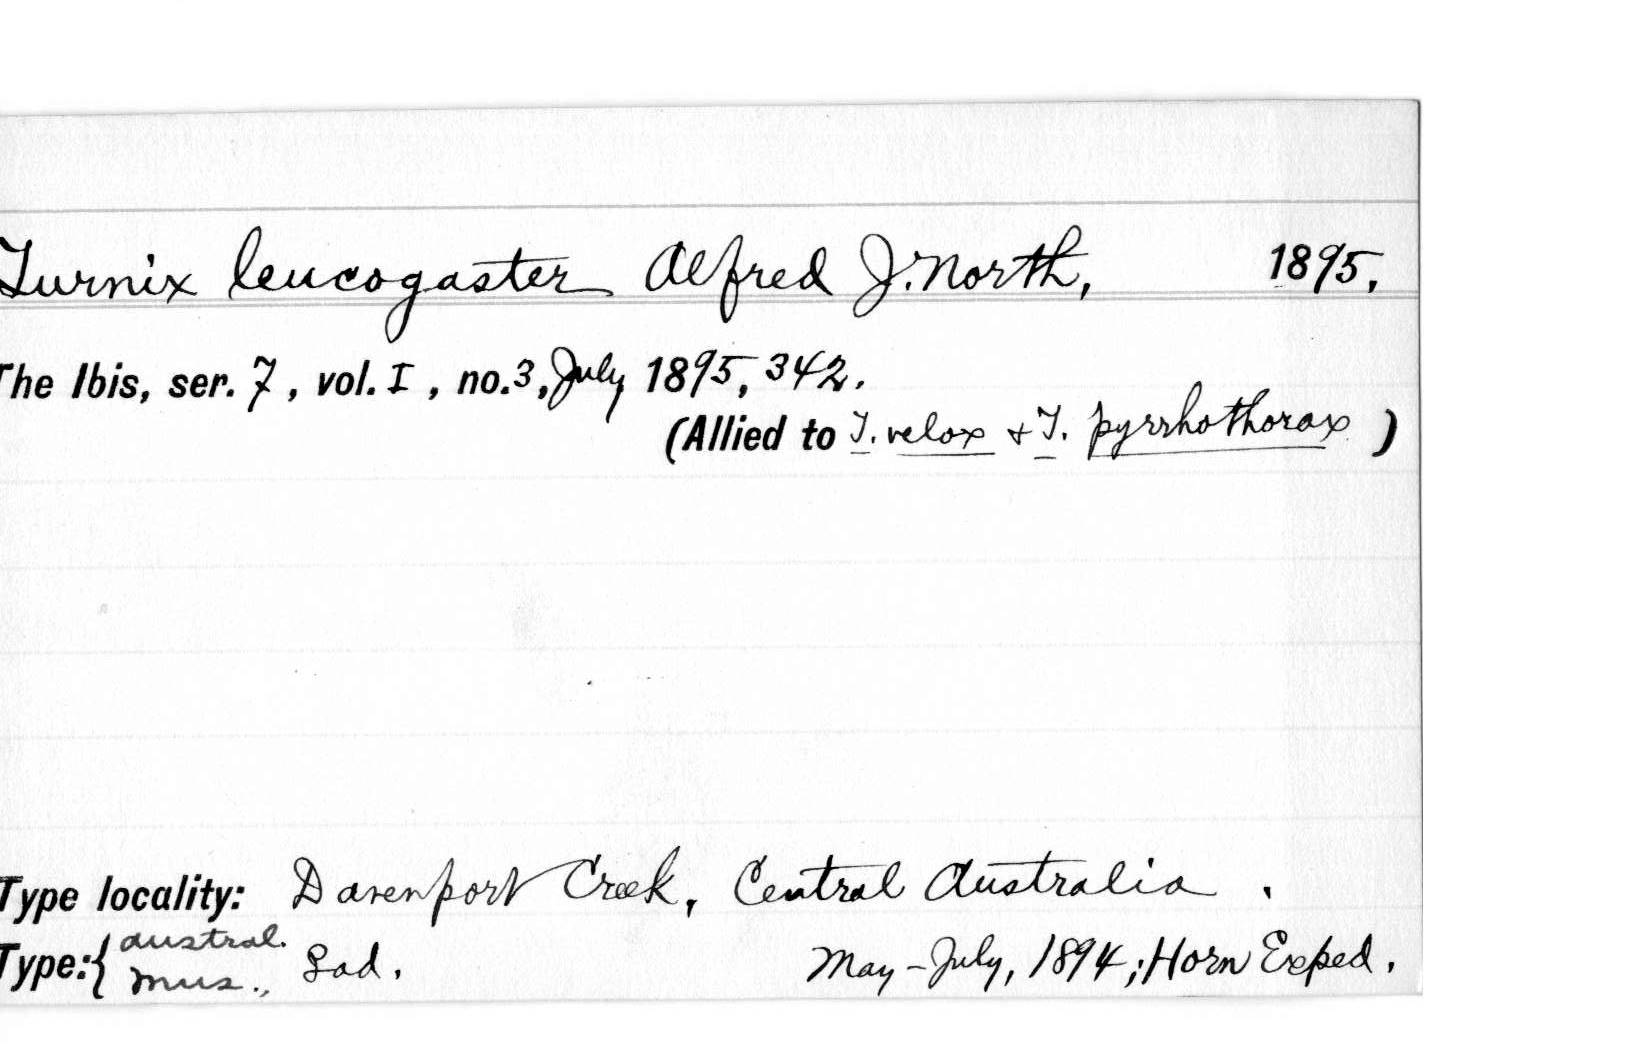 Turnix leucogaster Alfred J. North, 1895.
The Ibis, ser. 7, vol. I, no. 3, July 1895, 342.
(Allied to T. velox & T. pyrrhothorax)
Type locality: Davenport Creek, Central Australia.
Type: { Austral. Mus., ad. May-July, 1894; Horn Exped.